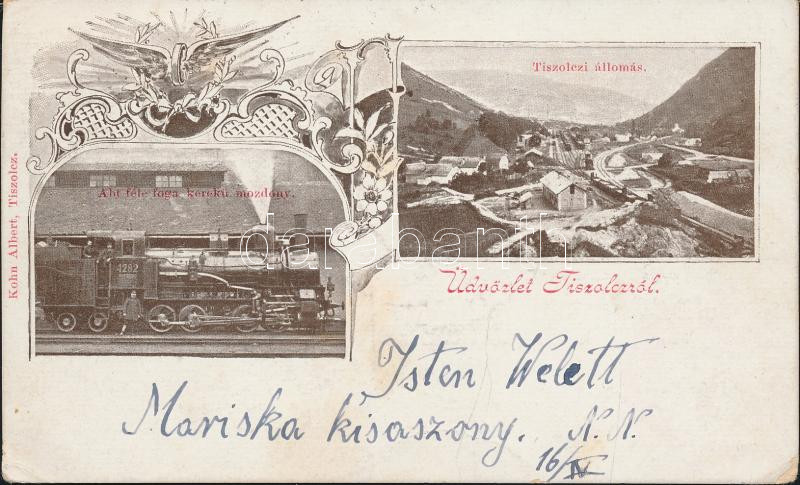 Tiszolczi állomás.
Abt féle foga kerekü mozdony.
Kohn Albert, Tiszolcz.
4282
darabanth
Üdvözlet Tiszolczról.
Isten Welett
Mariska kisaszony. N. N.
16/IV